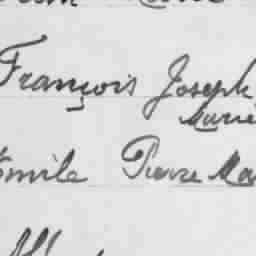 François Joseph
Marie
Emile Pierre Ma